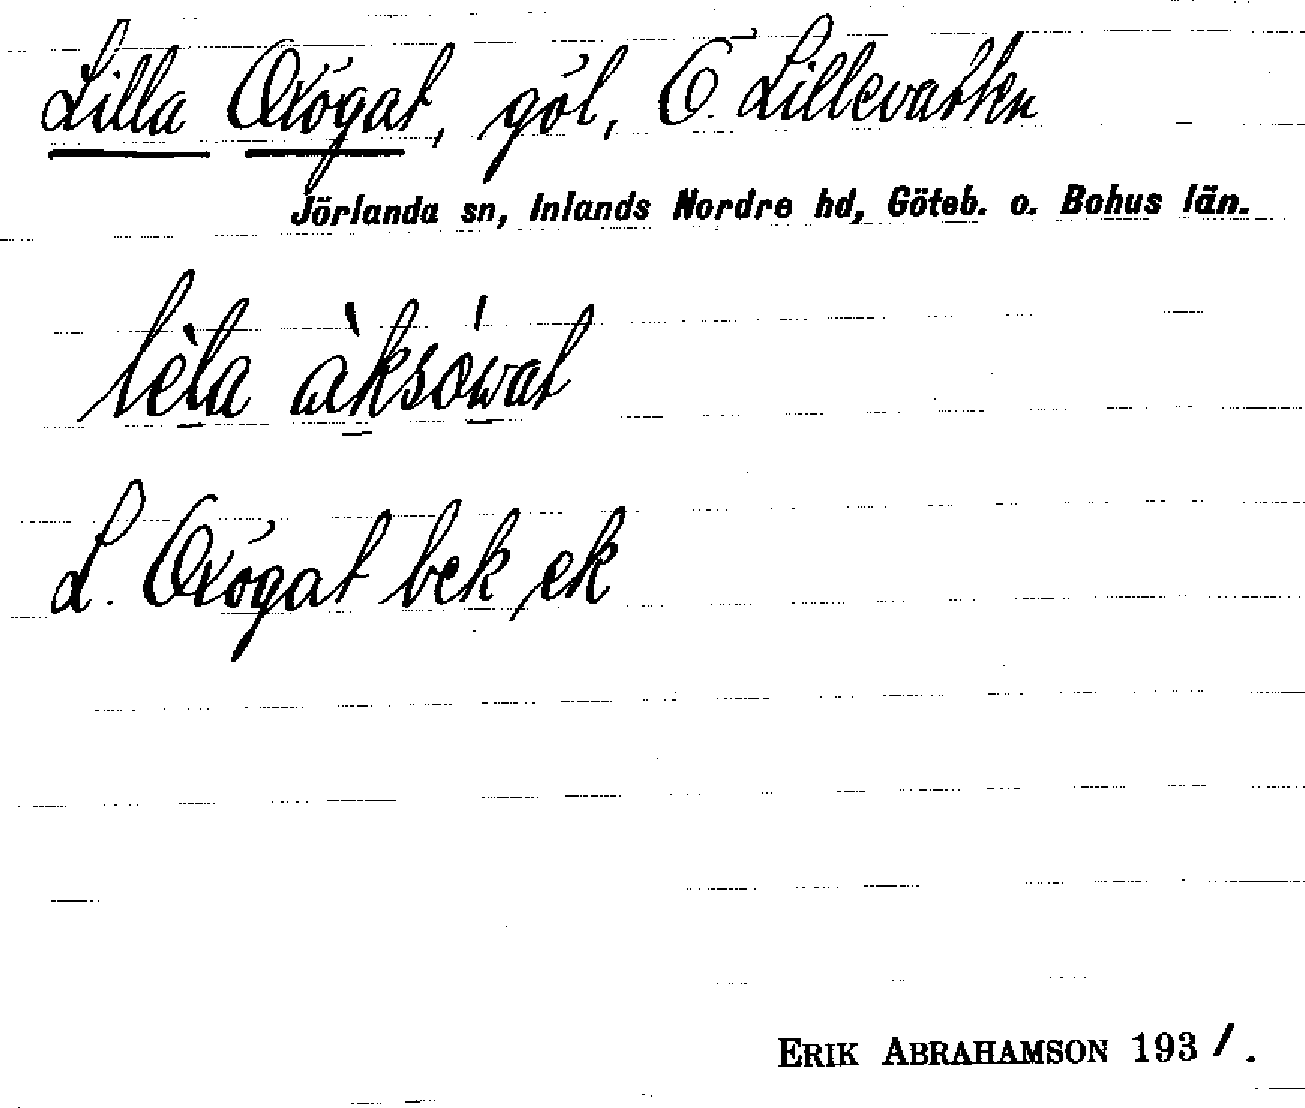 Lilla Oxögat, göl, Ö. Lillevatten
Jörlanda sn, Inlands Nordre hd, Göteb. o. Bohus län.
lèta àksówat
L. Oxögat bek ek
ERIK ABRAHAMSON 1931.